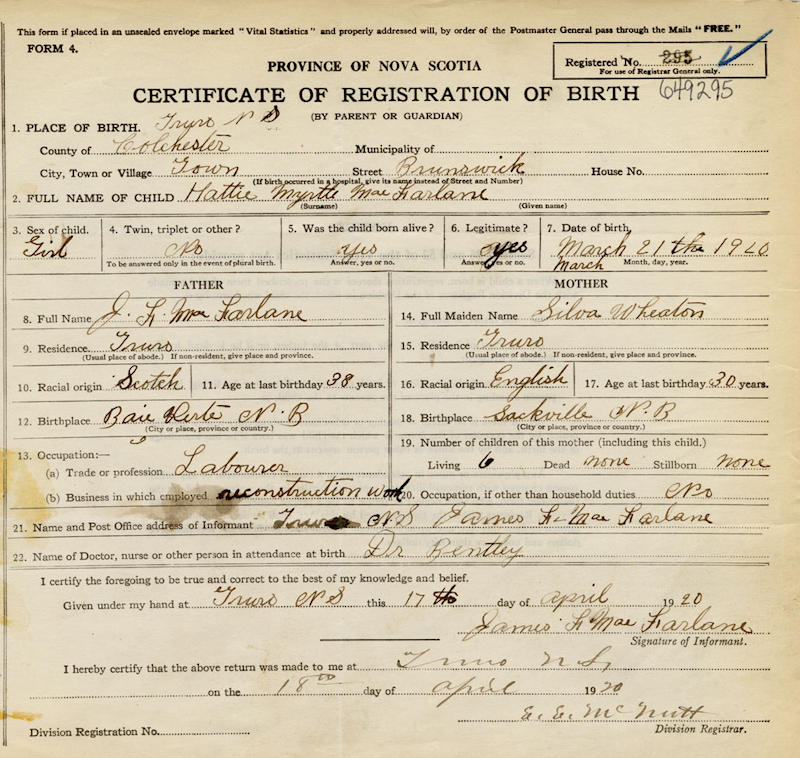 This form if placed in an unsealed envelope marked "Vital Statistics" and properly addressed will, by order of the Postmaster General pass through the Mails "FREE."
FORM 4.
Registered No. 295
For use of Registrar General only.
PROVINCE OF NOVA SCOTIA
CERTIFICATE OF REGISTRATION OF BIRTH 649295
(BY PARENT OR GUARDIAN)
1. PLACE OF BIRTH. Truro N S
County of Colchester Municipality of
City, Town or Village Town Street Brunswick House No.
(If birth occurred in a hospital, give its name instead of Street and Number)
2. FULL NAME OF CHILD Hattie Myrtle Mac Farlane
(Surname) (Given name)
3. Sex of child. 4. Twin, triplet or other? 5. Was the child born alive? 6. Legitimate? 7. Date of birth.
Girl No yes yes March 21 th 1920
To be answered only in the event of plural birth. Answer, yes or no. Answer, yes or no. March Month, day, year.
FATHER
8. Full Name J. F. Mac Farlane
9. Residence. Truro
(Usual place of abode.) If non-resident, give place and province.
10. Racial origin Scotch 11. Age at last birthday 38 years.
12. Birthplace Baie Verte N. B
(City or place, province or country.)
13. Occupation:—
(a) Trade or profession Labourer
(b) Business in which employed reconstruction work
MOTHER
14. Full Maiden Name Silva Wheaton
15. Residence Truro
(Usual place of abode.) If non-resident, give place and province.
16. Racial origin English 17. Age at last birthday 30 years.
18. Birthplace Sackville N. B
(City or place, province or country.)
19. Number of children of this mother (including this child.)
Living 6 Dead none Stillborn none
20. Occupation, if other than household duties No
21. Name and Post Office address of Informant Truro N S James F. Mac Farlane
22. Name of Doctor, nurse or other person in attendance at birth Dr Bentley
I certify the foregoing to be true and correct to the best of my knowledge and belief.
Given under my hand at Truro N S this 17 th day of april 1920
James F Mac Farlane
Signature of Informant.
I hereby certify that the above return was made to me at Truro N. S.
on the 18 day of april 1920
E. E. McNutt
Division Registration No. Division Registrar.